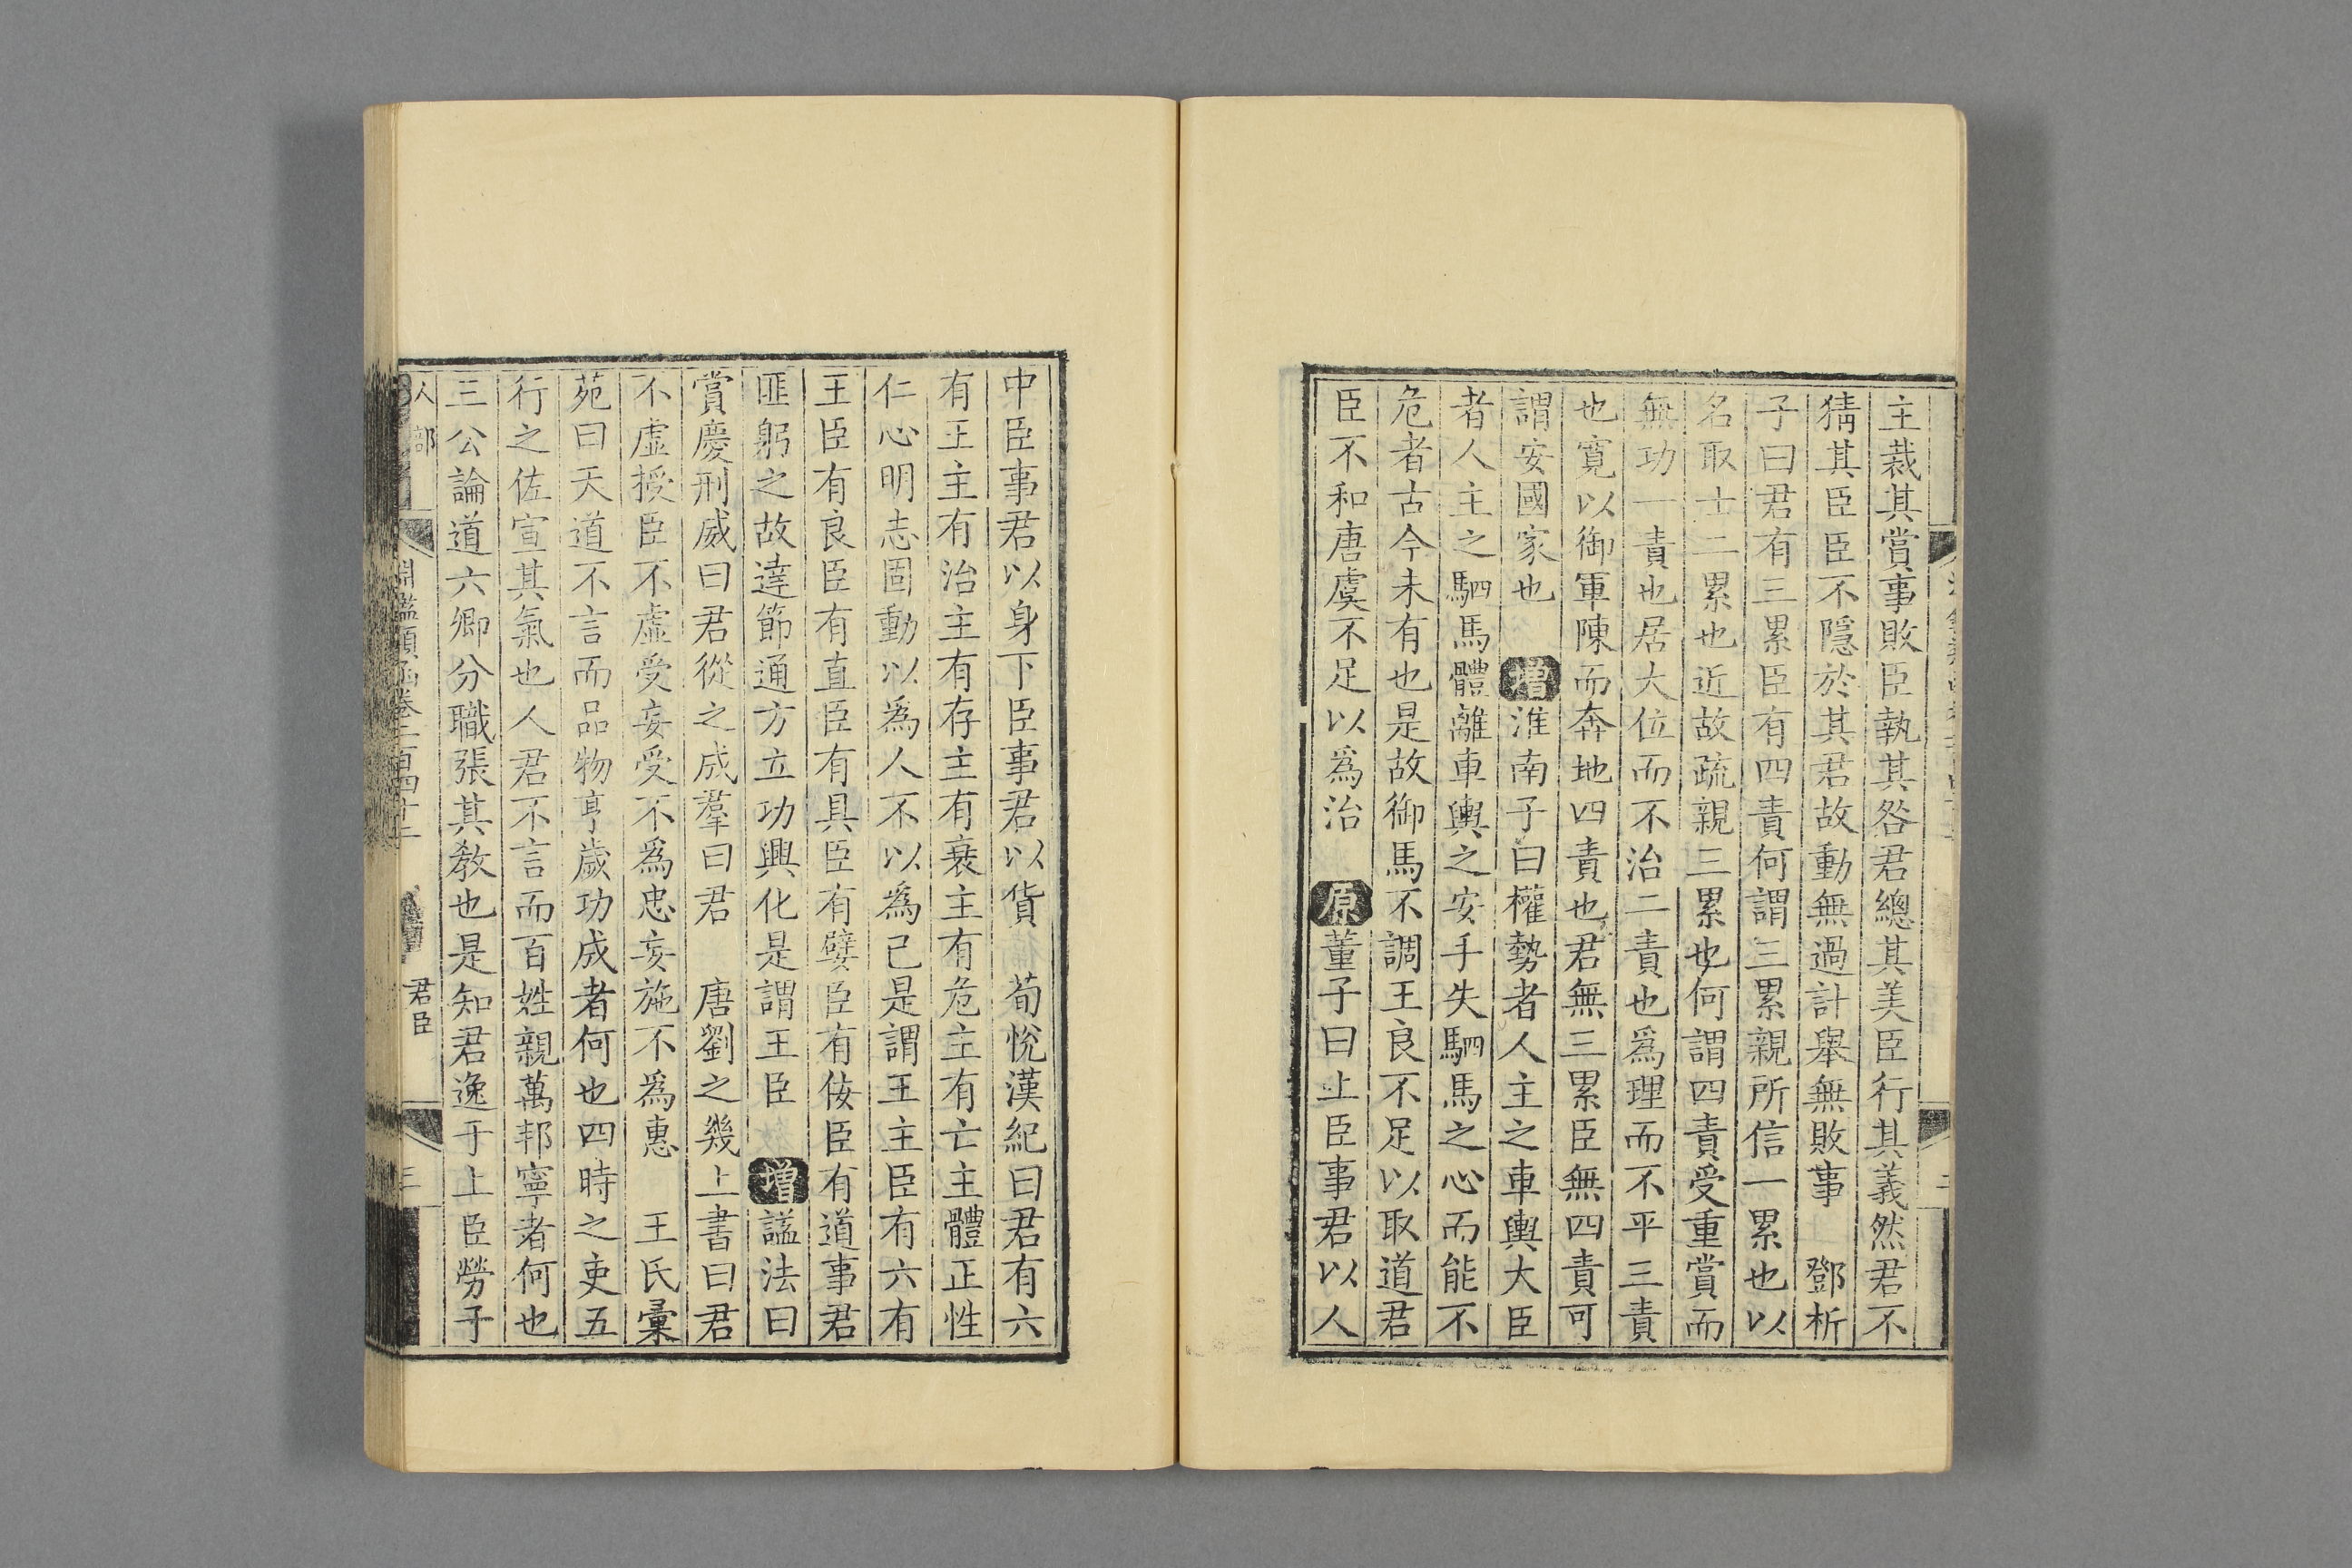 主裁其賞事敗臣執其咎君總其美臣行其義然君不
猜其臣臣不隱於其君故動無過計舉無敗事　鄧析
子曰君有三累臣有四責何謂三累親所信一累也以
名取士二累也近故疏親三累也何謂四責受重賞而
無功一責也居大位而不治二責也爲理而不平三責
也寬以御軍陳而奔地四責也君無三累臣無四責可
謂安國家也　增淮南子曰權勢者人主之車輿大臣
者人主之駟馬體離車輿之安手失駟馬之心而能不
危者古今未有也是故御馬不調王良不足以取道君
臣不和唐虞不足以爲治　原董子曰上臣事君以人
中臣事君以身下臣事君以貨　荀悅漢紀曰君有六
有王主有治主有存主有衰主有危主有亡主體正性
仁心明志固動以爲人不以爲己是謂王主臣有六有
王臣有良臣有直臣有具臣有嬖臣有佞臣有道事君
匪躬之故達節通方立功興化是謂王臣　增謚法曰
賞慶刑威曰君從之成羣曰君　唐劉之幾上書曰君
不虛授臣不虛受妄受不爲忠妄施不爲惠　王氏彙
苑曰天道不言而品物亨歲功成者何也四時之吏五
行之佐宣其氣也人君不言而百姓親萬邦寧者何也
三公論道六卿分職張其教也是知君逸于上臣勞于
人部　淵鑑類函卷二百四十二　君臣　三